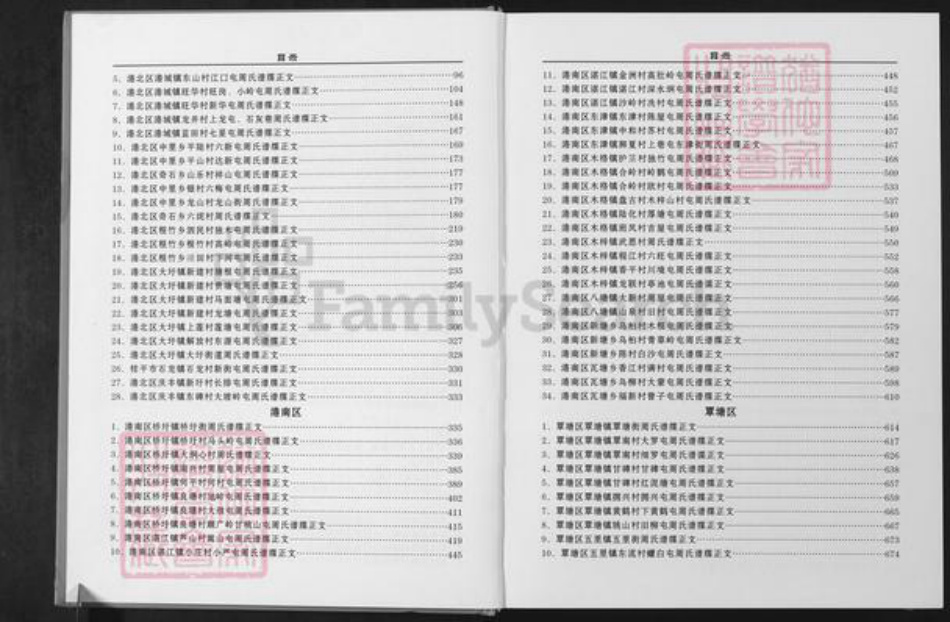 目录
5、港北区港城镇东山村江口屯周氏谱牒正文 96
6、港北区港城镇旺华村旺岗、小岭屯周氏谱牒正文 104
7、港北区港城镇旺华村新华屯周氏谱牒正文 148
8、港北区港城镇龙井村上龙屯、石灰巷周氏谱牒正文 161
9、港北区港城镇蓝田村七星屯周氏谱牒正文 167
10、港北区中里乡平陆村六新屯周氏谱牒正文 169
11、港北区中里乡平山村达新屯周氏谱牒正文 173
12、港北区奇石乡山乐村祥山屯周氏谱牒正文 177
13、港北区中里乡银村六梅屯周氏谱牒正文 177
14、港北区中里乡龙山村龙山街周氏谱牒正文 179
15、港北区奇石乡六斑村周氏谱牒正文 180
16、港北区根竹乡泗民村独木屯周氏谱牒正文 219
17、港北区根竹乡根竹村高岭屯周氏谱牒正文 230
18、港北区根竹乡 田村 屯周氏谱牒正文 233
19、港北区大圩镇新建村塘根屯周氏谱牒正文 235
20、港北区大圩镇新建村贵塘屯周氏谱牒正文 256
21、港北区大圩镇新建村马面塘屯周氏谱牒正文 301
22、港北区大圩镇新建村龙塘屯周氏谱牒正文 303
23、港北区大圩镇上莲村莲塘屯周氏谱牒正文 306
24、港北区大圩镇解放村东源屯周氏谱牒正文 327
25、港北区大圩镇大圩街道周氏谱牒正文 328
26、桂平市石龙镇石龙村新街屯周氏谱牒正文 330
27、港北区庆丰镇新圩村长排屯周氏谱牒正文 331
28、港北区庆丰镇东碑村大坡岭屯周氏谱牒正文 333
港南区
1、港南区桥圩镇桥圩街周氏谱牒正文 335
2、港南区桥圩镇桥圩村马头岭屯周氏谱牒正文 336
3、港南区桥圩镇大洞心村周氏谱牒正文 339
4、港南区桥圩镇 村 屋屯周氏谱牒正文 385
5、港南区桥圩镇何平村何村屯周氏谱牒正文 389
6、港南区桥圩镇良塘村 岭屯周氏谱牒正文 402
7、港南区桥圩镇良塘村大 屯周氏谱牒正文 411
8、港南区桥圩镇 村 广岭甘桃山屯周氏谱牒正文 415
9、港南区湛江镇 山村 屯周氏谱牒正文 419
10、港南区湛江镇小庄村小严屯周氏谱牒正文 445
目录
11、港南区湛江镇金洲村高社岭屯周氏谱牒正文 448
12、港南区湛江镇湛江村深水垌屯周氏谱牒正文 452
13、港南区湛江镇沙岭村冼村屯周氏谱牒正文 455
14、港南区东津镇东津村陈屋屯周氏谱牒正文 456
15、港南区东津镇中和村苏村屯周氏谱牒正文 457
16、港南区东津镇狮夏村上巷屯东津街周氏谱牒正文 467
17、港南区木格镇护兰村独竹屯周氏谱牒正文 468
18、港南区木格镇合岭村岭鹅屯周氏谱牒正文 509
19、港南区木格镇合岭村欧村屯周氏谱牒正文 533
20、港南区木格镇盘古村木梓山村屯周氏谱牒正文 537
21、港南区木格镇陆化村厚塘屯周氏谱牒正文 540
22、港南区木梓镇班凤村吉屋屯周氏谱牒正文 549
23、港南区木梓镇武思村周氏谱牒正文 550
24、港南区木梓镇棍江村六旺屯周氏谱牒正文 552
25、港南区木梓镇香平村川埇屯周氏谱牒正文 558
26、港南区木梓镇龙联村亭池屯周氏谱牒正文 560
27、港南区八塘镇大新村周屋屯周氏谱牒正文 566
28、港南区八塘镇山泉村旧村屯周氏谱牒正文 577
29、港南区新塘乡鸟柏村木根屯周氏谱牒正文 579
30、港南区新塘乡鸟柏村青草岭屯周氏谱牒正文 582
31、港南区新塘乡陈村白沙屯周氏谱牒正文 587
32、港南区瓦塘乡香江村满村屯周氏谱牒正文 589
33、港南区瓦塘乡乌柳村大蒙屯周氏谱牒正文 598
34、港南区瓦塘乡福新村曾子屯周氏谱牒正文 610
覃塘区
1、覃塘区覃塘镇覃塘街周氏谱牒正文 614
2、覃塘区覃塘镇覃南村大罗屯周氏谱牒正文 617
3、覃塘区覃塘镇覃南村细罗屯周氏谱牒正文 626
4、覃塘区覃塘镇甘碑村甘碑屯周氏谱牒正文 638
5、覃塘区覃塘镇甘碑村红泥塘屯周氏谱牒正文 657
6、覃塘区覃塘镇拥兴村拥兴屯周氏谱牒正文 659
7、覃塘区覃塘镇黄鹤村下黄鹤屯周氏谱牒正文 665
8、覃塘区覃塘镇姚山村旧柳屯周氏谱牒正文 667
9、覃塘区五里镇五里街周氏谱牒正文 673
10、覃塘区五里镇东流村螺白屯周氏谱牒正文 674
FamilySearch